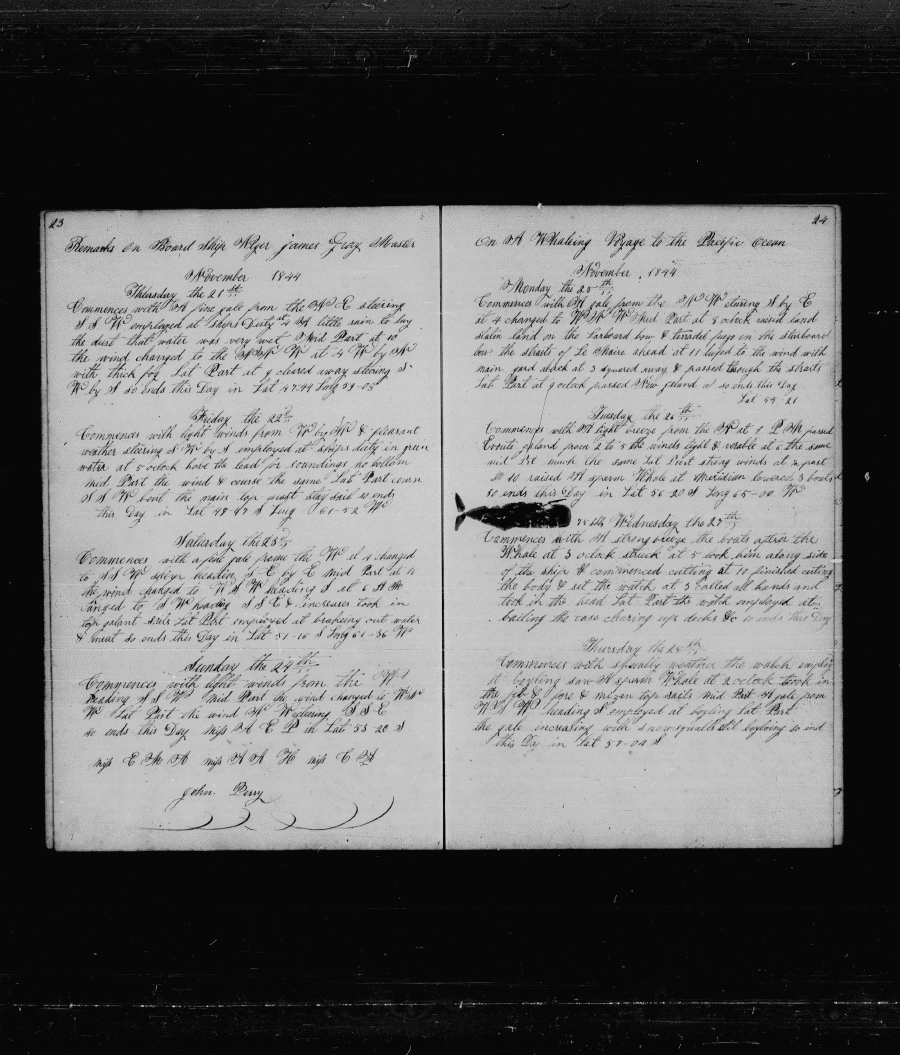 23
Remarks On Board Ship James Gray Master
November 1844
Thursday the 21st
Commences with A fine gale from the N E steering
S S W employed at Ships Duty at 4 A little rain to lay
the dust that water was very wet Mid Part at 10
the wind changed to the W at 4 W by N
with thick fog Lat Part at 9 cleared away steering S
W by S so ends this Day in Lat 47-44 Long 59-05
Friday the 22d
Commences with light winds from W by N & pleasant
weather steering S W by S employed at ships duty in green
water at 5 oclock hove the lead for soundings no bottom
mid Part the wind & course the same Lat Part course
S S W bent the main top mast stay sail so ends
this Day in Lat 48-47 S Long 61-52 W
Saturday the 23d
Commences with a fine gale from the W at 4 changed
to S S W heading S E by E Mid Part at 11
the wind changed to W S W heading S at 6 A M
changed to S W heading S S E & increases took in
top galant sails Lat Part employed at brakeing out water
& meat so ends this Day in Lat 51-16 S Long 61-36 W
Sunday the 24th
Commences with light winds from the W
heading S S W Mid Part the wind changed to W
W Lat Part the wind W steering S S E
so ends this Day miss A E P in Lat 53 20 S
miss E M A miss A A H miss C
John Perry
24
On A Whaleing Voyage to the Pacific Ocean
November 1844
Monday the 25th
Commences with A gale from the N W steering S by E
at 4 changed to W Mid Part at 8 oclock raised land
staten land on the larboard bow & terradel fuego on the starboard
bow the straits of Le Maire ahead at 11 lufed to the wind with
main yard aback at 3 squared away & passed through the straits
Lat Part at 9 oclock passed New island so ends this Day
Lat 55 21
Tuesday the 26th
Commences with A light breeze from the N at 1 P M passed
island from 2 to 5 the winds light & verable at 6 the same
mid Prt much the same Lat Part strong winds at past
10 raised A sperm Whale at Meridian lowered 3 boats
so ends this Day in Lat 56 20 S Long 65-00 W
75 bbls Wednesday the 27th
Commences with A strong breeze the boats after the
Whale at 3 oclock struck at 5 took him along side
of the ship & commenced cutting at 10 finished cutting
the body & set the watch at 3 called all hands and
took in the head Lat Part the watch employed at
bailing the case clearing up decks &c so ends this Day
Thursday the 28th
Commences with squally weather the watch employ
at boyling saw A sperm Whale at 2 oclock took in
the jib & fore & mizen top sails mid Part A gale from
W S W heading S employed at boyling Lat Part
the gale increasing with snow squalls still boyleing so end
this Day in Lat 57-04 S